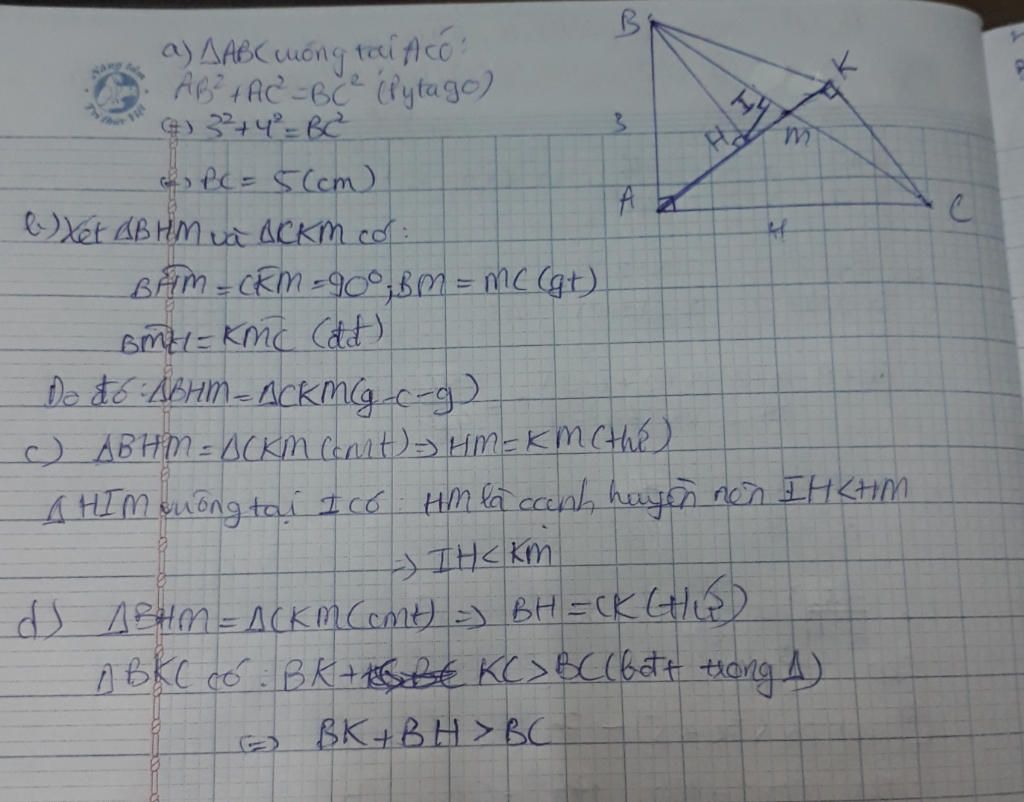 a) ΔABC vuông tại A có:
AB² + AC² = BC² (Pytago)
(=) 3² + 4² = BC²
(=) BC = 5 (cm)
b) Xét ΔBHM và ΔCKM có:
BHM = CKM = 90°; BM = MC (gt)
BMH = KMC (đđ)
Do đó: ΔBHM = ΔCKM (g-c-g)
c) ΔBHM = ΔCKM (cmt) => HM = KM
ΔHIM vuông tại I có: HM là cạnh huyền nên IH < HM
=> IH < KM
d) ΔBHM = ΔCKM (cmt) => BH = CK
ΔBKC có: BK + KC > BC (bđt trong Δ)
(=) BK + BH > BC
B
K
I
H
M
3
A
C
4